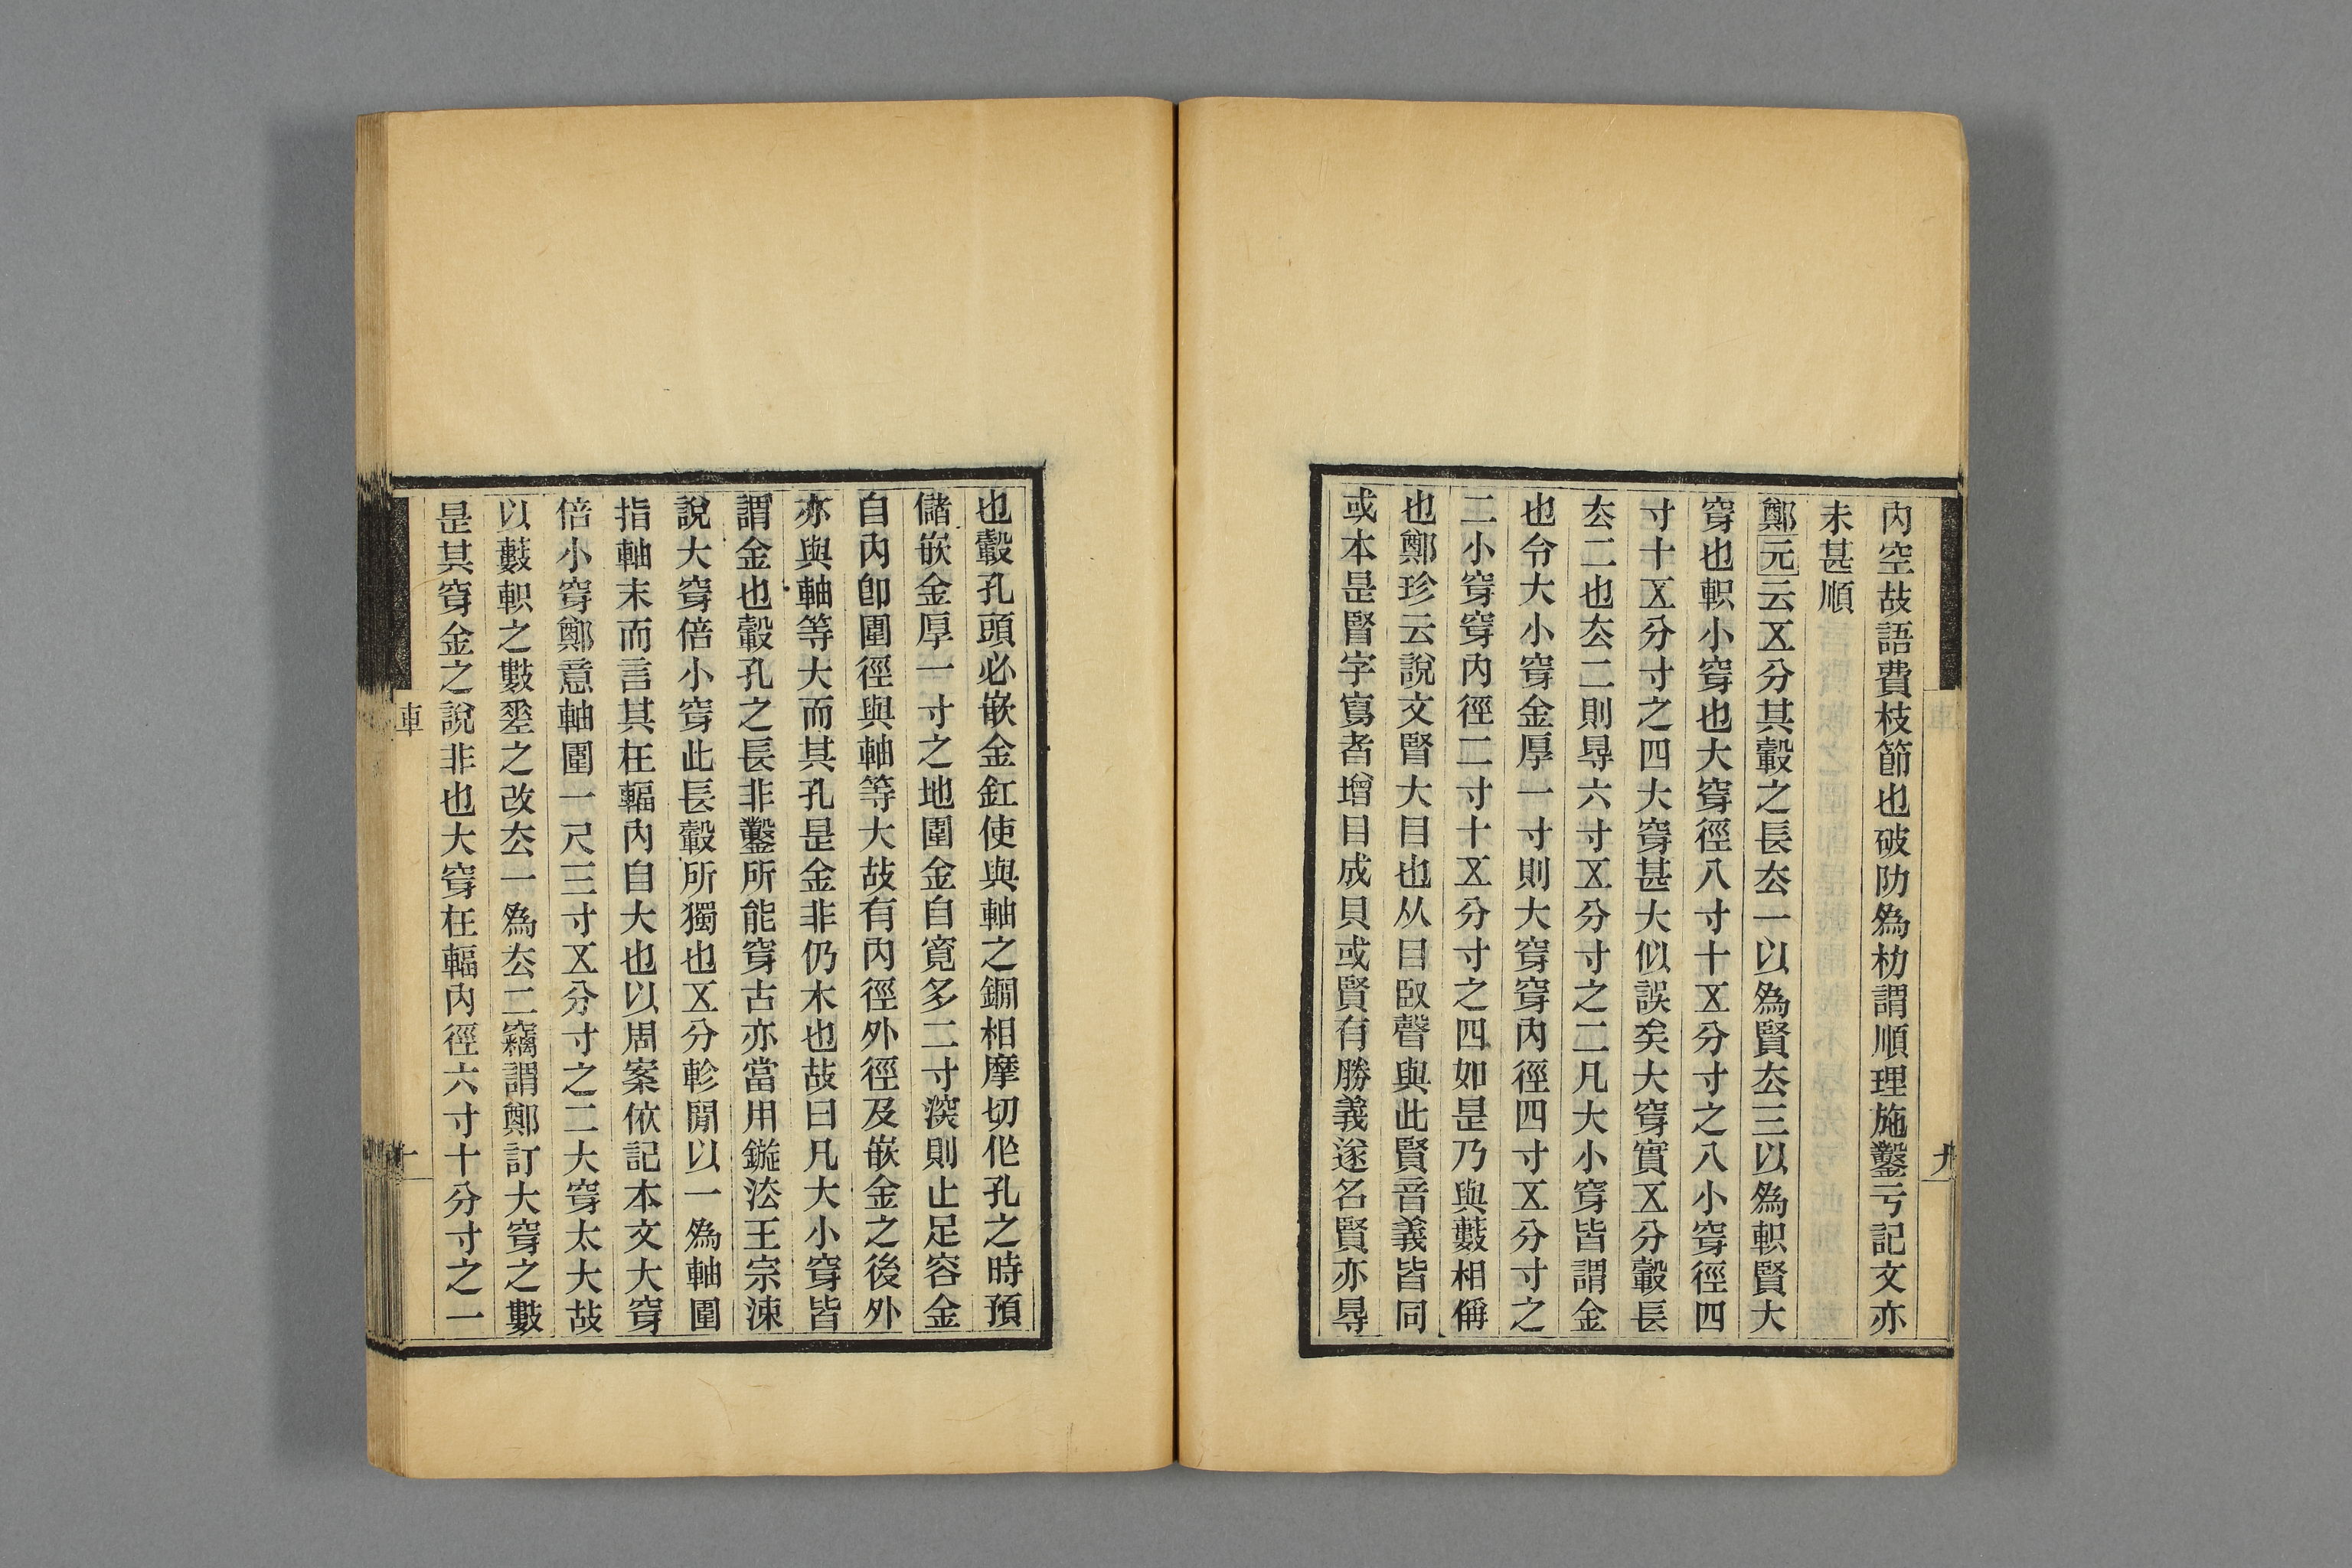 內空故語費枝節也破阞爲朸謂順理施鑿亏記文亦
未甚順
鄭元云五分其轂之長厺一以爲賢厺三以爲軹賢大
穿也軹小穿也大穿徑八寸十五分寸之八小穿徑四
寸十五分寸之四大穿甚大似誤矣大穿實五分轂長
厺二也厺二則㝵六寸五分寸之二凡大小穿皆謂金
也令大小穿金厚一寸則大穿穿內徑四寸五分寸之
二小穿穿內徑二寸十五分寸之四如是乃與藪相偁
也鄭珍云說文䝨大目也从目臤聲與此賢音義皆同
或本是䝨字寫者增目成貝或賢有勝義遂名賢亦㝵
九
也轂孔頭必嵌金釭使與軸之鐗相摩切㐳孔之時預
儲嵌金厚一寸之地圍金自寬多二寸湥則止足容金
自內卽圍徑與軸等大故有內徑外徑及嵌金之後外
亦與軸等大而其孔是金非仍木也故曰凡大小穿皆
謂金也轂孔之長非鑿所能穿古亦當用鏇法王宗涑
說大穿倍小穿此長轂所獨也五分軫閒以一爲軸圍
指軸末而言其在輻內自大也以周案依記本文大穿
倍小穿鄭意軸圍一尺三寸五分寸之二大穿太大故
以藪軹之數㘸之改厺一爲厺二竊謂鄭訂大穿之數
是其穿金之說非也大穿在輻內徑六寸十分寸之一
車
十